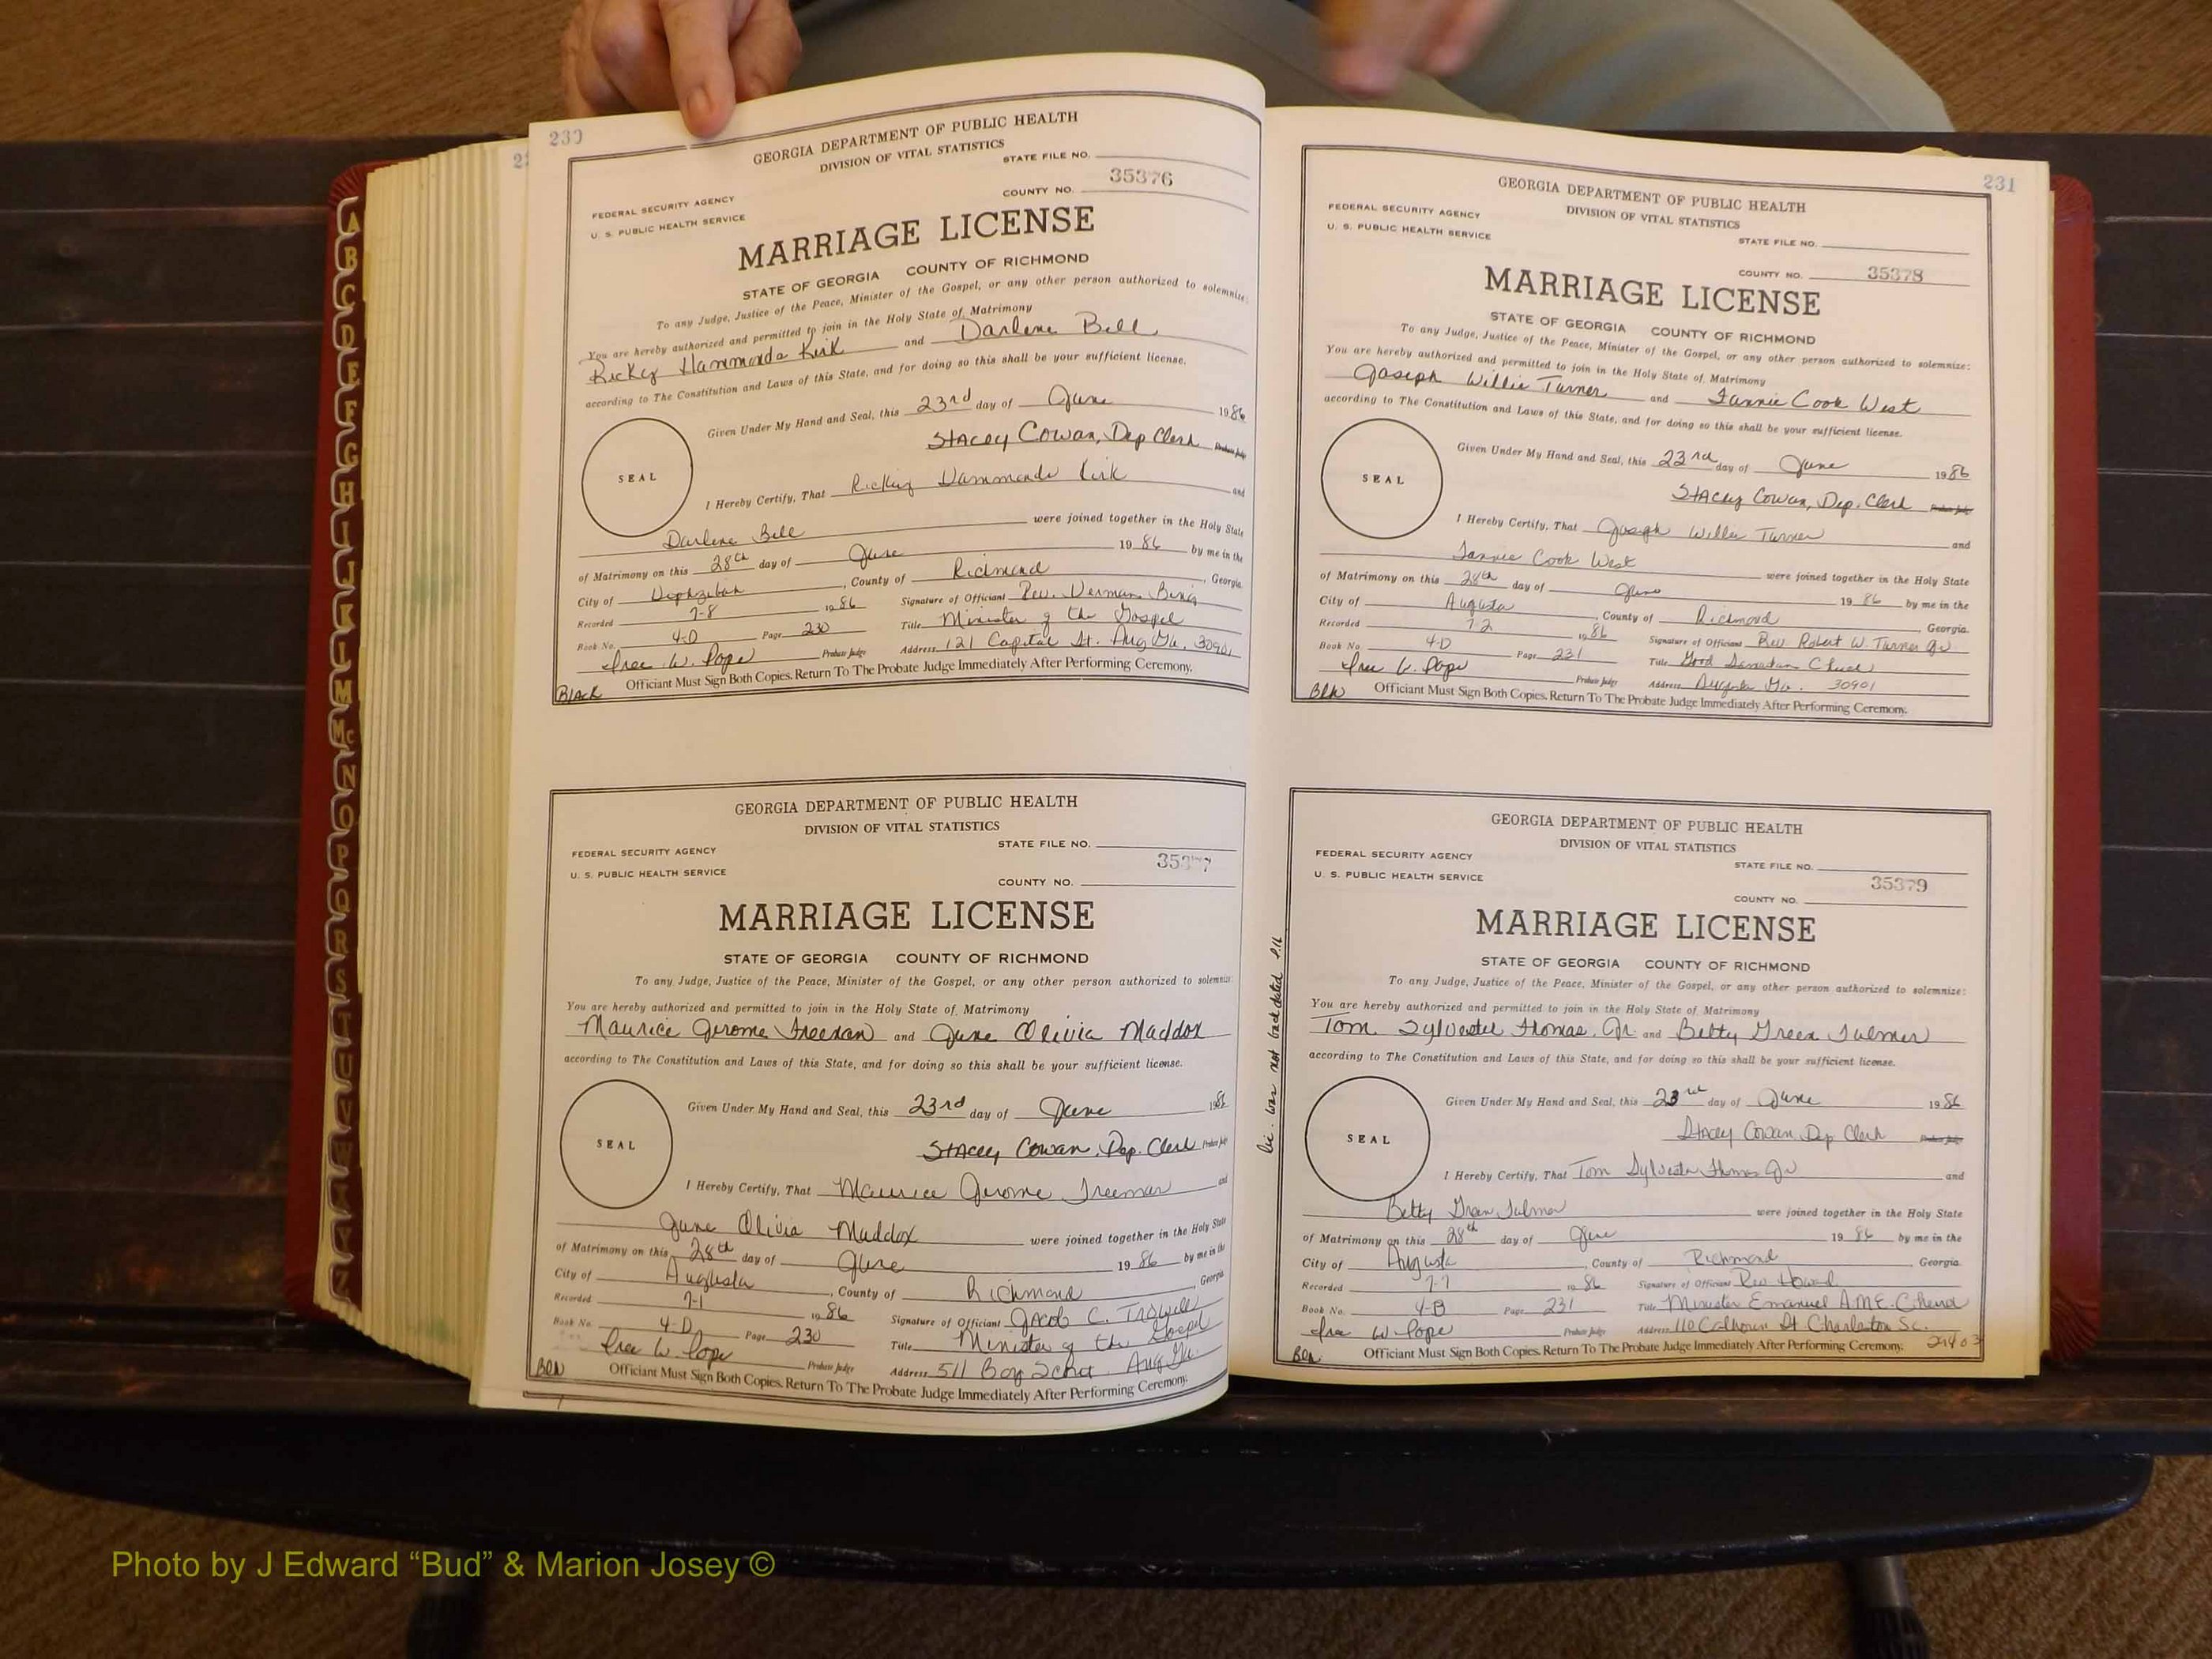 230
GEORGIA DEPARTMENT OF PUBLIC HEALTH
DIVISION OF VITAL STATISTICS
STATE FILE NO.
35376
COUNTY NO.
FEDERAL SECURITY AGENCY
U. S. PUBLIC HEALTH SERVICE
MARRIAGE LICENSE
STATE OF GEORGIA COUNTY OF RICHMOND
To any Judge, Justice of the Peace, Minister of the Gospel, or any other person authorized to solemnize:
You are hereby authorized and permitted to join in the Holy State of Matrimony
Ricky Hammonds Kirk and Darlene Bell
according to The Constitution and Laws of this State, and for doing so this shall be your sufficient license.
Given Under My Hand and Seal, this 23rd day of June 1986
Stacey Cowan, Dep Clerk Probate Judge
SEAL
I Hereby Certify, That Ricky Hammonds Kirk and
Darlene Bell were joined together in the Holy State
of Matrimony on this 28th day of June 1986 by me in the
City of Hephzibah, County of Richmond, Georgia.
Recorded 7-8 1986 Signature of Officiant Rev. Herman Bing
Book No. 4-D Page 230 Title Minister of the Gospel
Isac W. Pope Probate Judge Address 121 Capital St. Aug Ga. 30901
Black Officiant Must Sign Both Copies. Return To The Probate Judge Immediately After Performing Ceremony.
GEORGIA DEPARTMENT OF PUBLIC HEALTH
DIVISION OF VITAL STATISTICS
STATE FILE NO.
FEDERAL SECURITY AGENCY
U. S. PUBLIC HEALTH SERVICE
COUNTY NO.
MARRIAGE LICENSE
STATE OF GEORGIA COUNTY OF RICHMOND
To any Judge, Justice of the Peace, Minister of the Gospel, or any other person authorized to solemnize:
You are hereby authorized and permitted to join in the Holy State of Matrimony
Maurice Jerome Freeman and June Olivia Maddox
according to The Constitution and Laws of this State, and for doing so this shall be your sufficient license.
Given Under My Hand and Seal, this 23rd day of June 1986
Stacey Cowan, Dep. Clerk Probate Judge
SEAL
I Hereby Certify, That Maurice Jerome Freeman and
June Olivia Maddox were joined together in the Holy State
of Matrimony on this 28th day of June 1986 by me in the
City of Augusta, County of Richmond, Georgia
Recorded 7-1 1986 Signature of Officiant Jacob C. Trowell
Book No. 4-D Page 230 Title Minister of the Gospel
W. Pope Probate Judge Address 511 Boy Scout. Aug Ga.
Officiant Must Sign Both Copies. Return To The Probate Judge Immediately After Performing Ceremony.
231
GEORGIA DEPARTMENT OF PUBLIC HEALTH
DIVISION OF VITAL STATISTICS
FEDERAL SECURITY AGENCY
U. S. PUBLIC HEALTH SERVICE
STATE FILE NO.
COUNTY NO. 35378
MARRIAGE LICENSE
STATE OF GEORGIA COUNTY OF RICHMOND
To any Judge, Justice of the Peace, Minister of the Gospel, or any other person authorized to solemnize:
You are hereby authorized and permitted to join in the Holy State of Matrimony
Joseph Willie Turner and Fannie Cook West
according to The Constitution and Laws of this State, and for doing so this shall be your sufficient license.
Given Under My Hand and Seal, this 23rd day of June 1986
Stacey Cowan, Dep. Clerk Probate Judge
SEAL
I Hereby Certify, That Joseph Willie Turner and
Fannie Cook West were joined together in the Holy State
of Matrimony on this 28th day of June 1986 by me in the
City of Augusta, County of Richmond Georgia.
Recorded 7-2 1986 Signature of Officiant Rev Robert W. Turner Jr
Book No. 4-D Page 231 Title Good Samaritan Church
W. Pope Probate Judge Address Augusta Ga. 30901
Officiant Must Sign Both Copies. Return To The Probate Judge Immediately After Performing Ceremony.
lic. was not back dated
GEORGIA DEPARTMENT OF PUBLIC HEALTH
DIVISION OF VITAL STATISTICS
FEDERAL SECURITY AGENCY
U. S. PUBLIC HEALTH SERVICE
STATE FILE NO.
35379
COUNTY NO.
MARRIAGE LICENSE
STATE OF GEORGIA COUNTY OF RICHMOND
To any Judge, Justice of the Peace, Minister of the Gospel, or any other person authorized to solemnize:
You are hereby authorized and permitted to join in the Holy State of Matrimony
Tom Sylvester Thomas, Jr. and Betty Green Fulmer
according to The Constitution and Laws of this State, and for doing so this shall be your sufficient license.
Given Under My Hand and Seal, this 23rd day of June 1986
Stacey Cowan, Dep Clerk Probate Judge
SEAL
I Hereby Certify, That Tom Sylvester Thomas Jr and
Betty Green Fulmer were joined together in the Holy State
of Matrimony on this 28th day of June 1986 by me in the
City of Augusta, County of Richmond, Georgia.
Recorded 7-7 1986 Signature of Officiant Rev Howard
Book No. 4-D Page 231 Title Minister Emanuel A.M.E. Church
W. Pope Probate Judge Address 110 Calhoun St Charleston SC.
Officiant Must Sign Both Copies. Return To The Probate Judge Immediately After Performing Ceremony. 29403
A
B
C
D
E
F
G
H
I
J
K
L
M
Mc
N
O
P
Q
R
S
T
U
V
W
X
Y
Z
Photo by J Edward “Bud” & Marion Josey ©